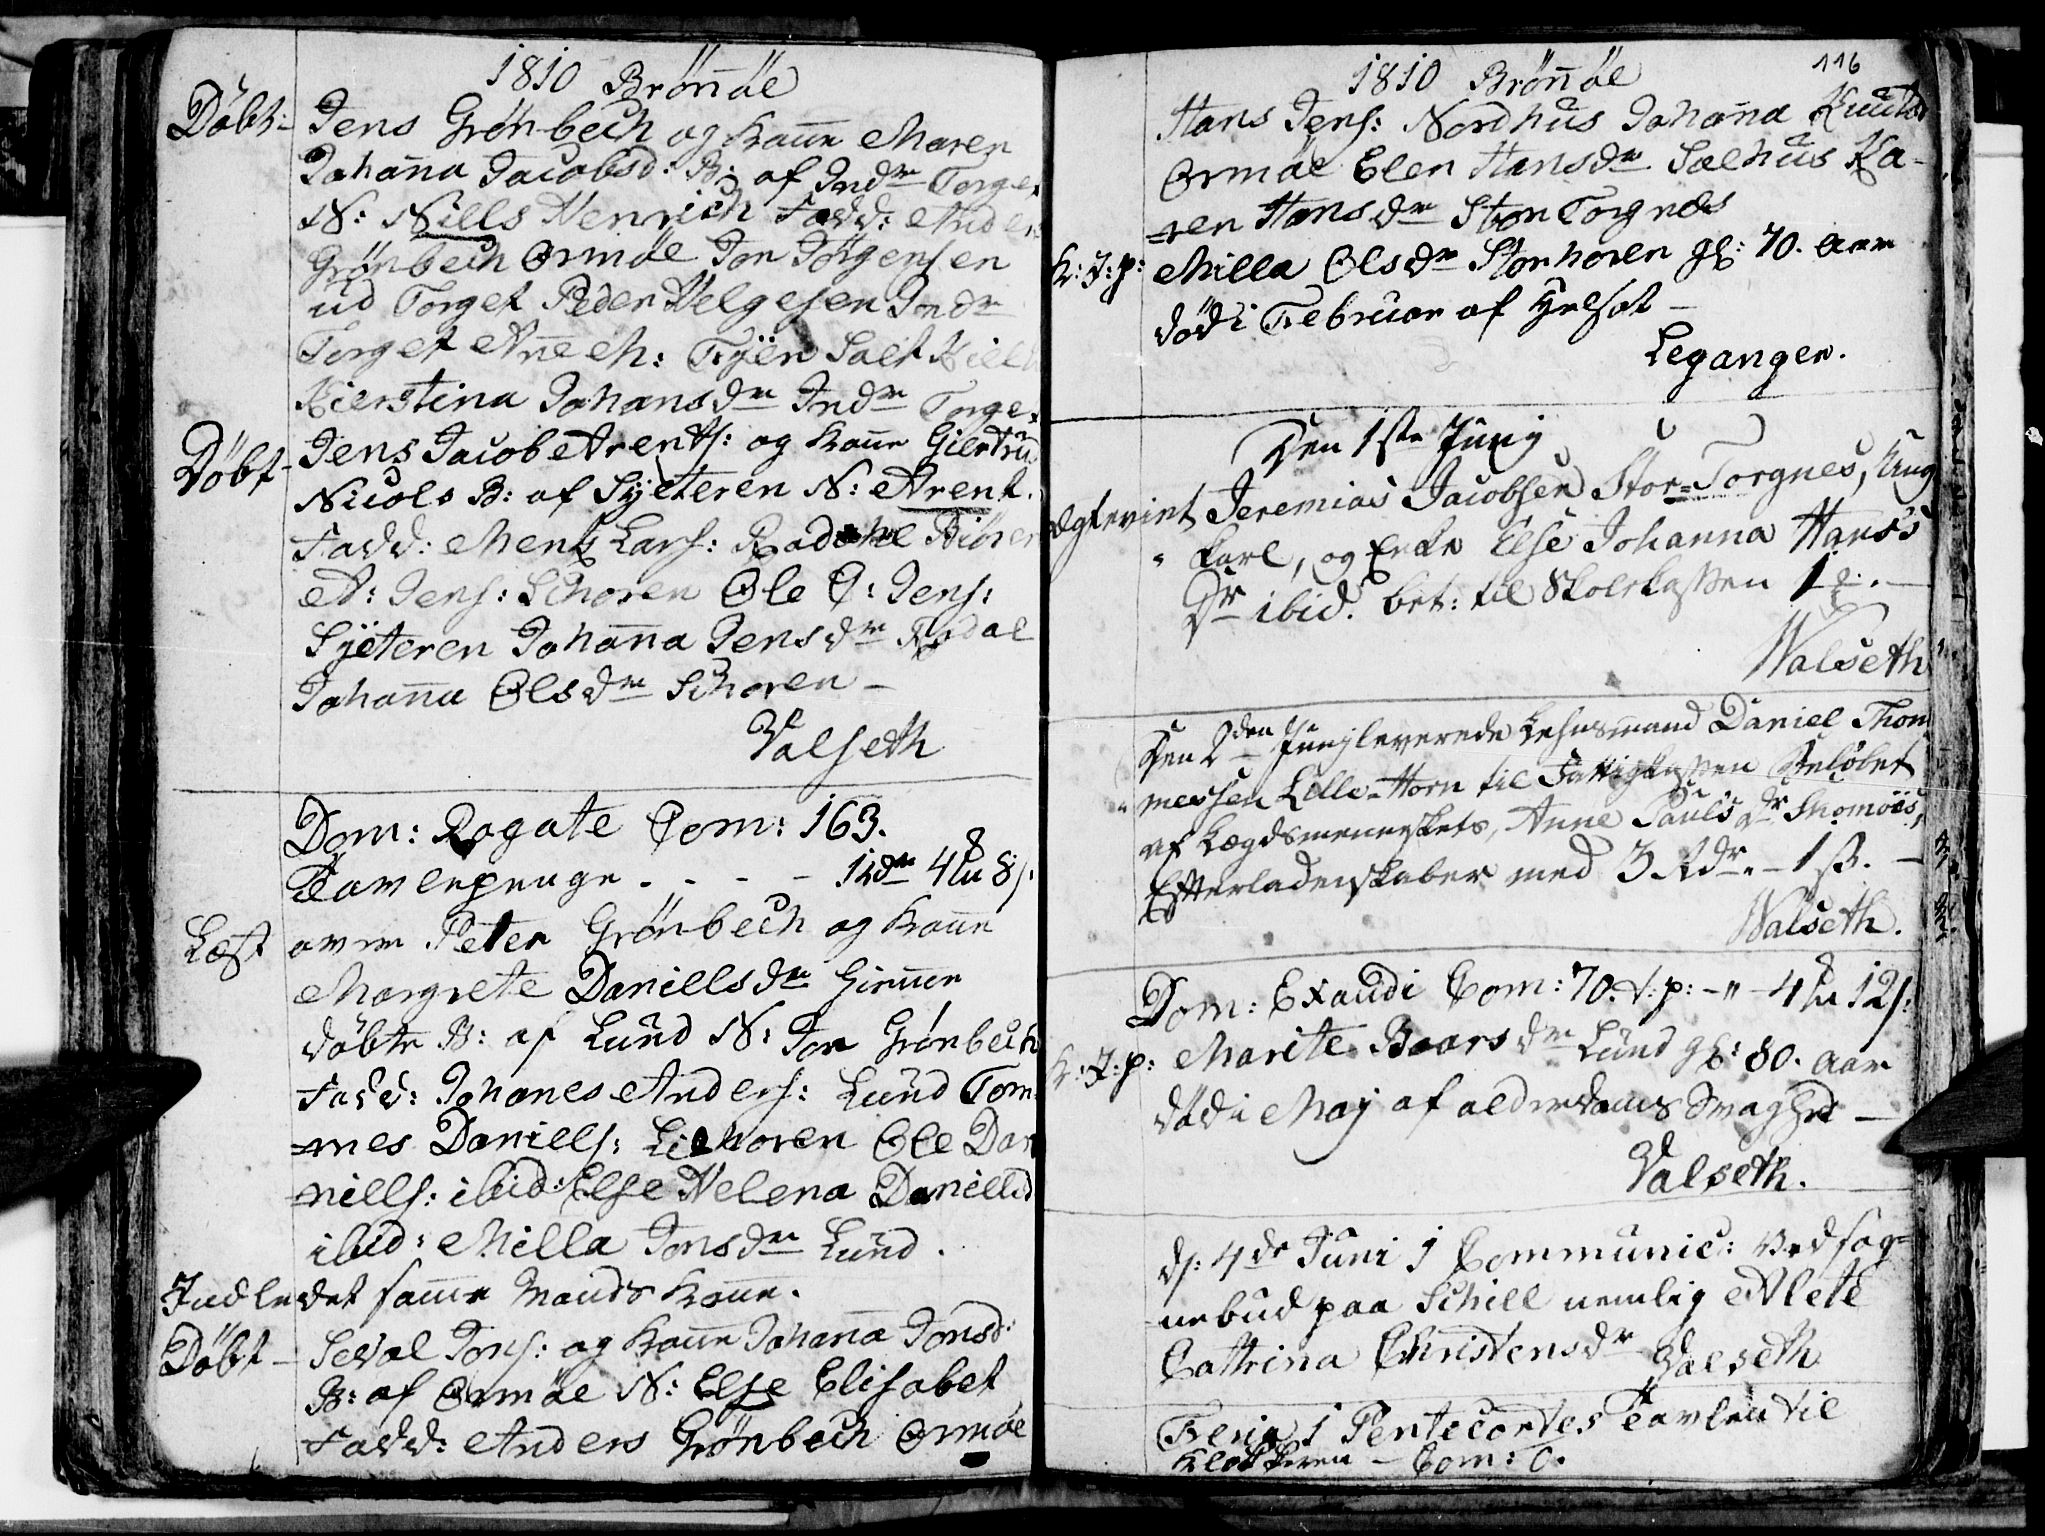 1810 Brönöe
Döbt: Jens Grönbech og Kone Maren
Johana Jacobsd: B: af Indr Torget
N: Nills Henrich Fadd: Anders
Grönbech Ormöe Jon Jörgensen
ud Torget Peder Helgesen Indr
Torget Ane M:
Kierstina Johansdr Indr Torget
Döbt Jens Jacob Arents: og Kone Giertru
Nicols B: af Syeteren N: Arent.
Fadd: Mentz Lars:
A: Jens: Schoren Ole O: Jens:
Syeteren Johana Jensdr
Johana Olsdr Schoren
Valseth
Dom: Rogate Com: 163.
Tavlepenge - - - 4 8 s.
Læst over Peter Grönbech og Kone
Margrete Daniellsdr
döbte B: af Lund N: Jon Grönbech
Fadd: Johanes Anders: Lund Tom
mes Daniells: Lilhoren Ole Da
niells: ibid: Else Helena Daniellsd
ibid: Milla Jonsdr Lund.
Indledet same Mands Kone.
Döbt Seval Jons: og Kone Johana Jonsd:
B: af Ormöe N: Else Elisabet
Fadd: Anders Grönbech Ormöe
116
1810 Brönöe
Hans Jens: Nordhus Johana Knutsd
Ormöe Elen Hansdr Salhus Ka-
ren Hansdr Stor Torgnes
K: J: p: Milla Olsdr Storhoren gl: 70. aar
död i Februar af
Legangen.
Den 1ste Junij
Ægteviet Jeremias Jacobsen Stor-Torgnes, Ung
karl, og Enke Else Johanna Hans's
Dr ibid. bet: til Skolekassen 1
Walseth
Den 2den Junij leverede Lehnsmand Daniel Thom
messen Lille-Horn til Fattigkassen Beløbet
af Lægdsmenneskets, Anne Pauls Dr
Efterladenskaber med 3 Rdr. - 1 s. -
Walseth.
Dom: Exaudi Com: 70. t: p: - " - 4 12 s:
K: J: p: Marite Baarsdr Lund gl: 80. aar
död i Maj af alderdoms Svaghed -
Valseth.
d: 4de Juni 1 Communic: ved sog-
nebud paa Schill nemlig Alete
Cattrina Christensdr Valseth
Feria 1 Pentecostes Tavlen til
Klokkeren - Com: 0.